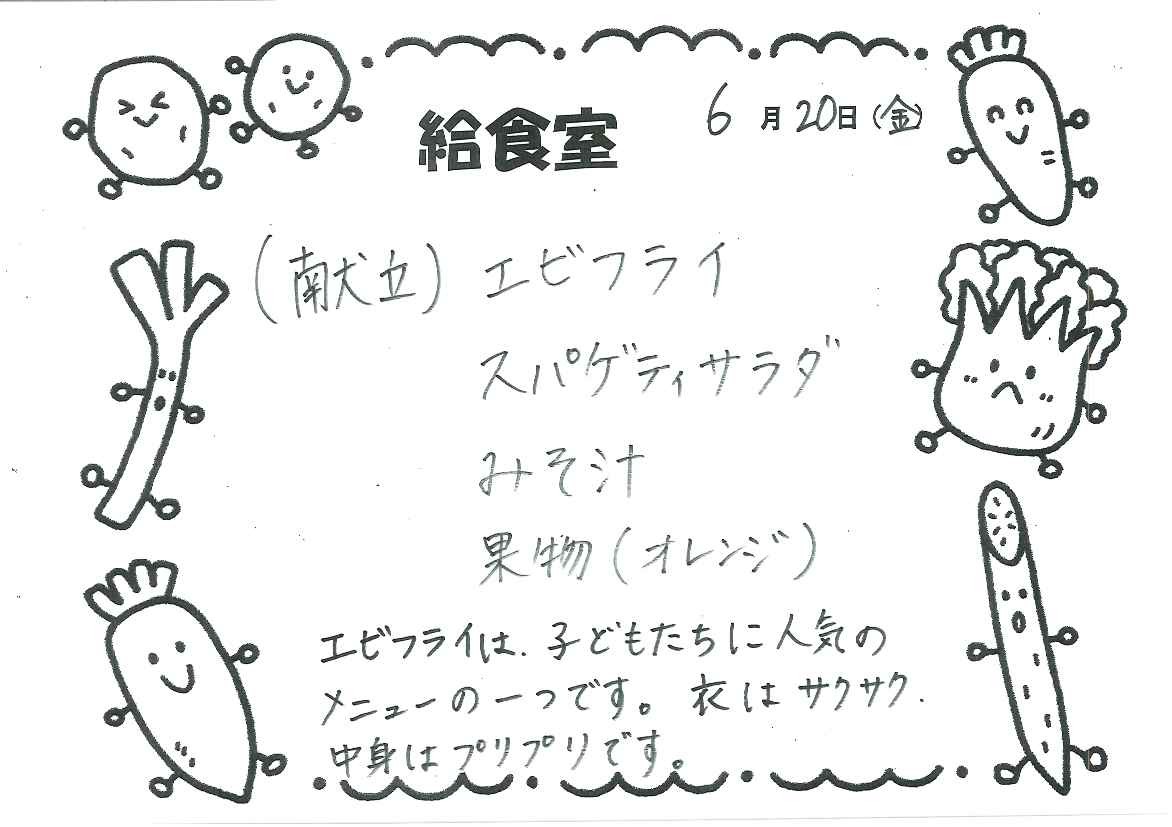 給食室
6月20日(金)
(献立) エビフライ
スパゲティサラダ
みそ汁
果物(オレンジ)
エビフライは、子どもたちに人気の
メニューの一つです。衣はサクサク、
中身はプリプリです。